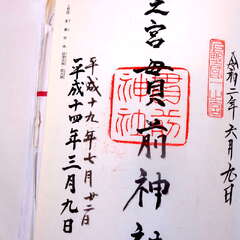 令和二年六月九日
之宮貫前神社
貫前
神社
平成十九年七月廿二日
平成十四年三月九日